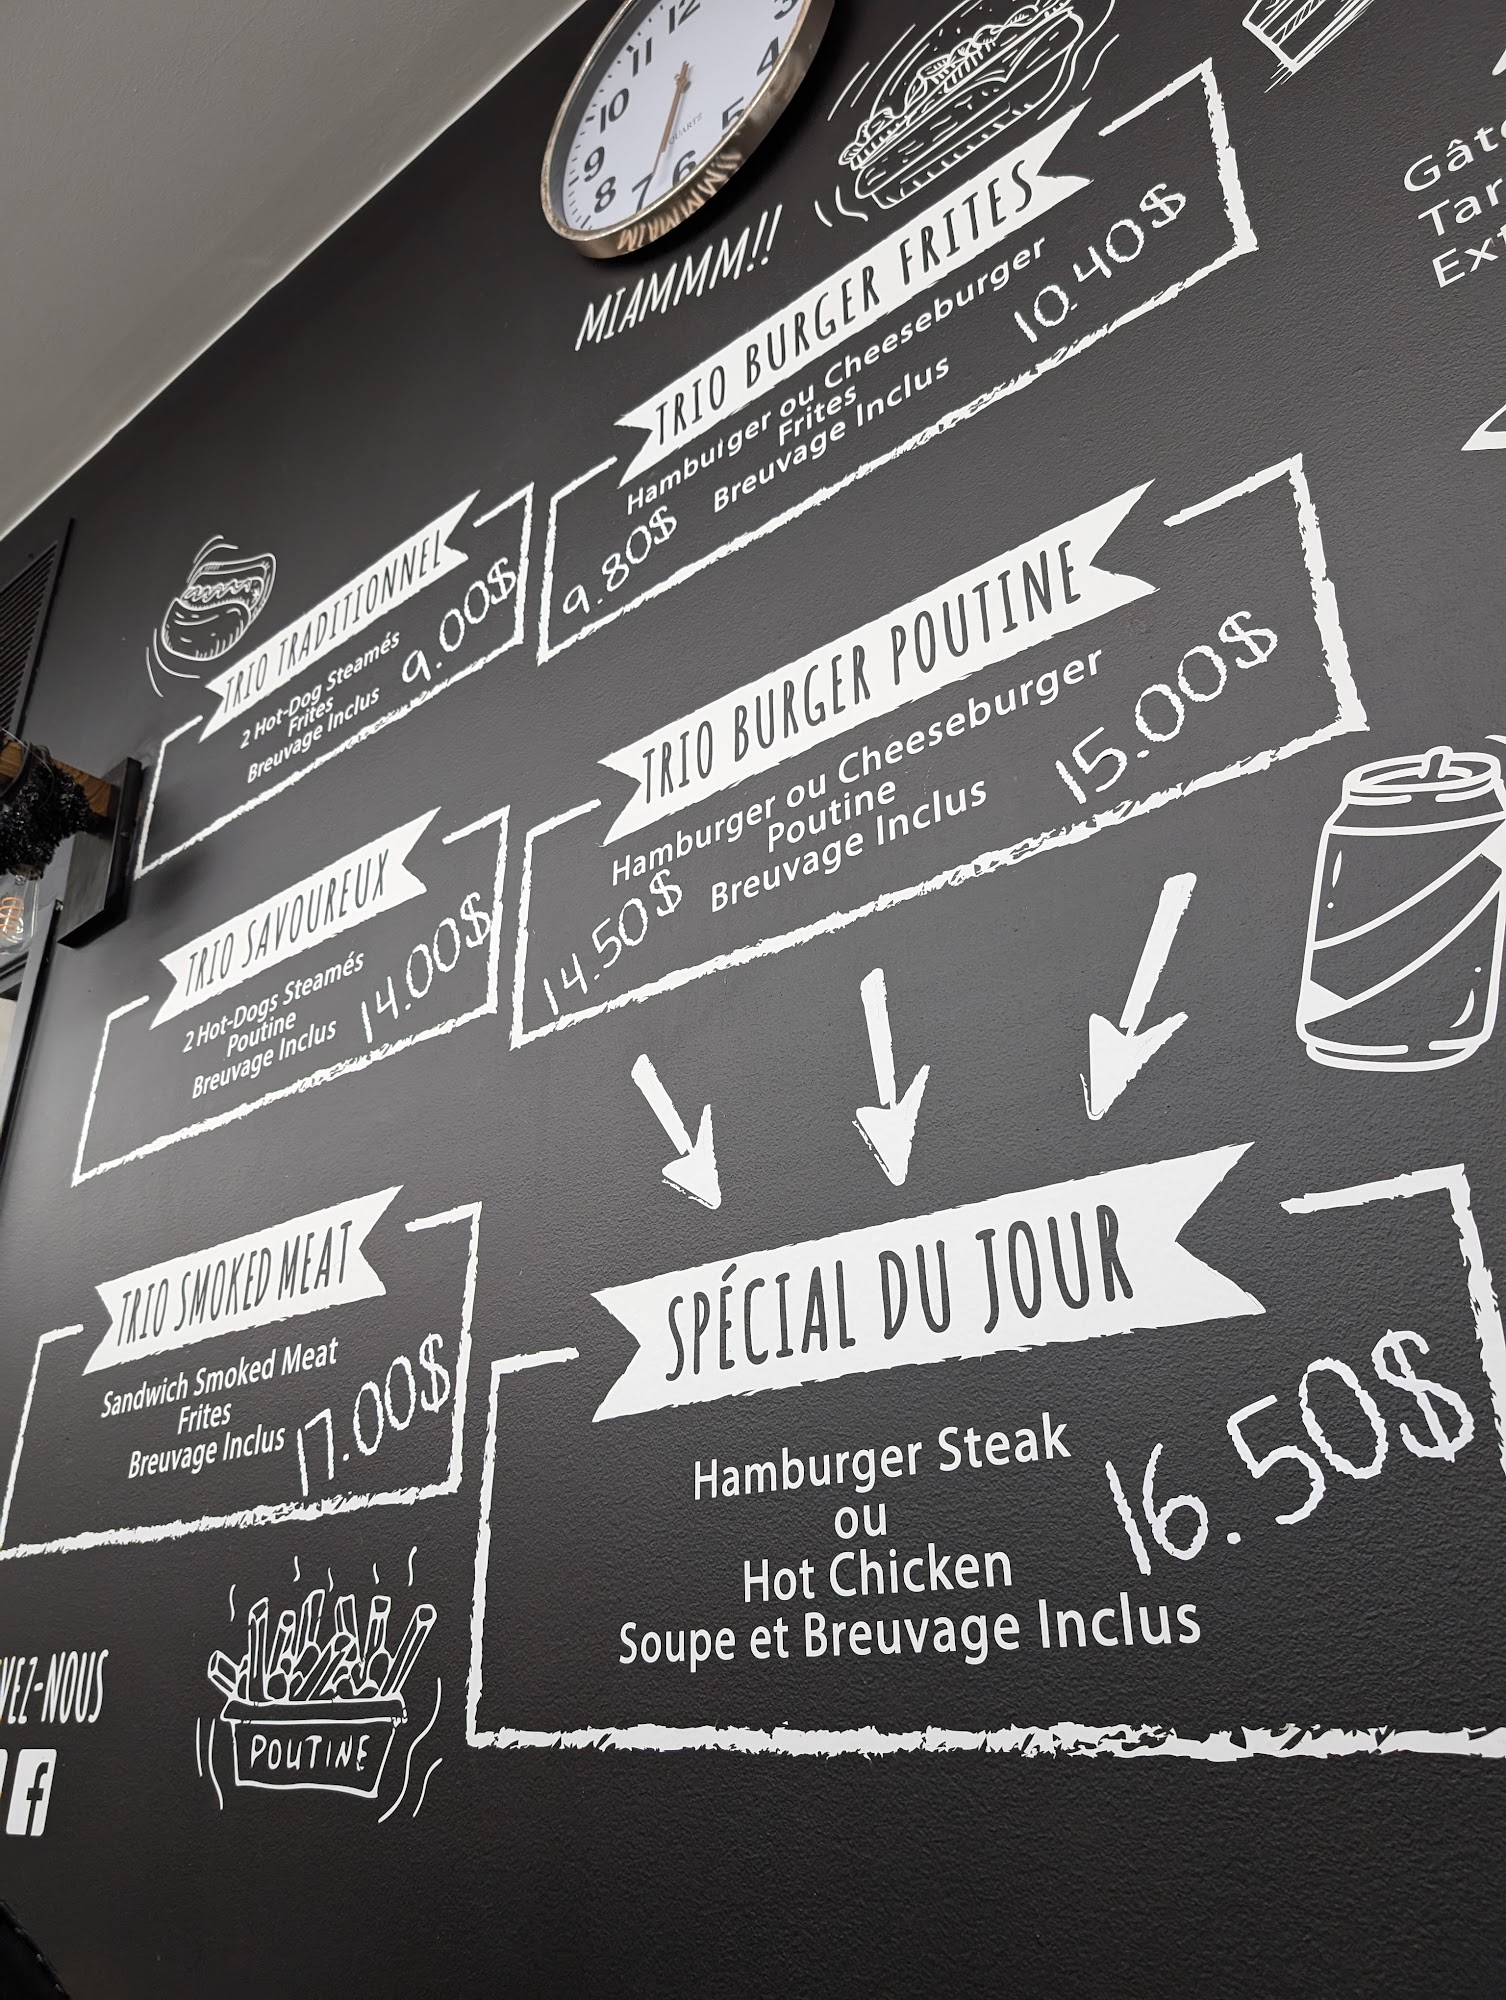 11 12 3
10 4
9 5
8 7 6
QUARTZ
MIAMMM!!
TRIO BURGER FRITES
Hamburger ou Cheeseburger
Frites
Breuvage Inclus
9.80$ 10.40$
TRIO TRADITIONNEL
2 Hot-Dog Steamés
Frites
Breuvage Inclus
9.00$
TRIO BURGER POUTINE
Hamburger ou Cheeseburger
Poutine
Breuvage Inclus
14.50$ 15.00$
TRIO SAVOUREUX
2 Hot-Dogs Steamés
Poutine
Breuvage Inclus
14.00$
TRIO SMOKED MEAT
Sandwich Smoked Meat
Frites
Breuvage Inclus
17.00$
SPÉCIAL DU JOUR
Hamburger Steak
ou
Hot Chicken
Soupe et Breuvage Inclus
16.50$
POUTINE
VEZ-NOUS
f
Gât
Tar
Ext